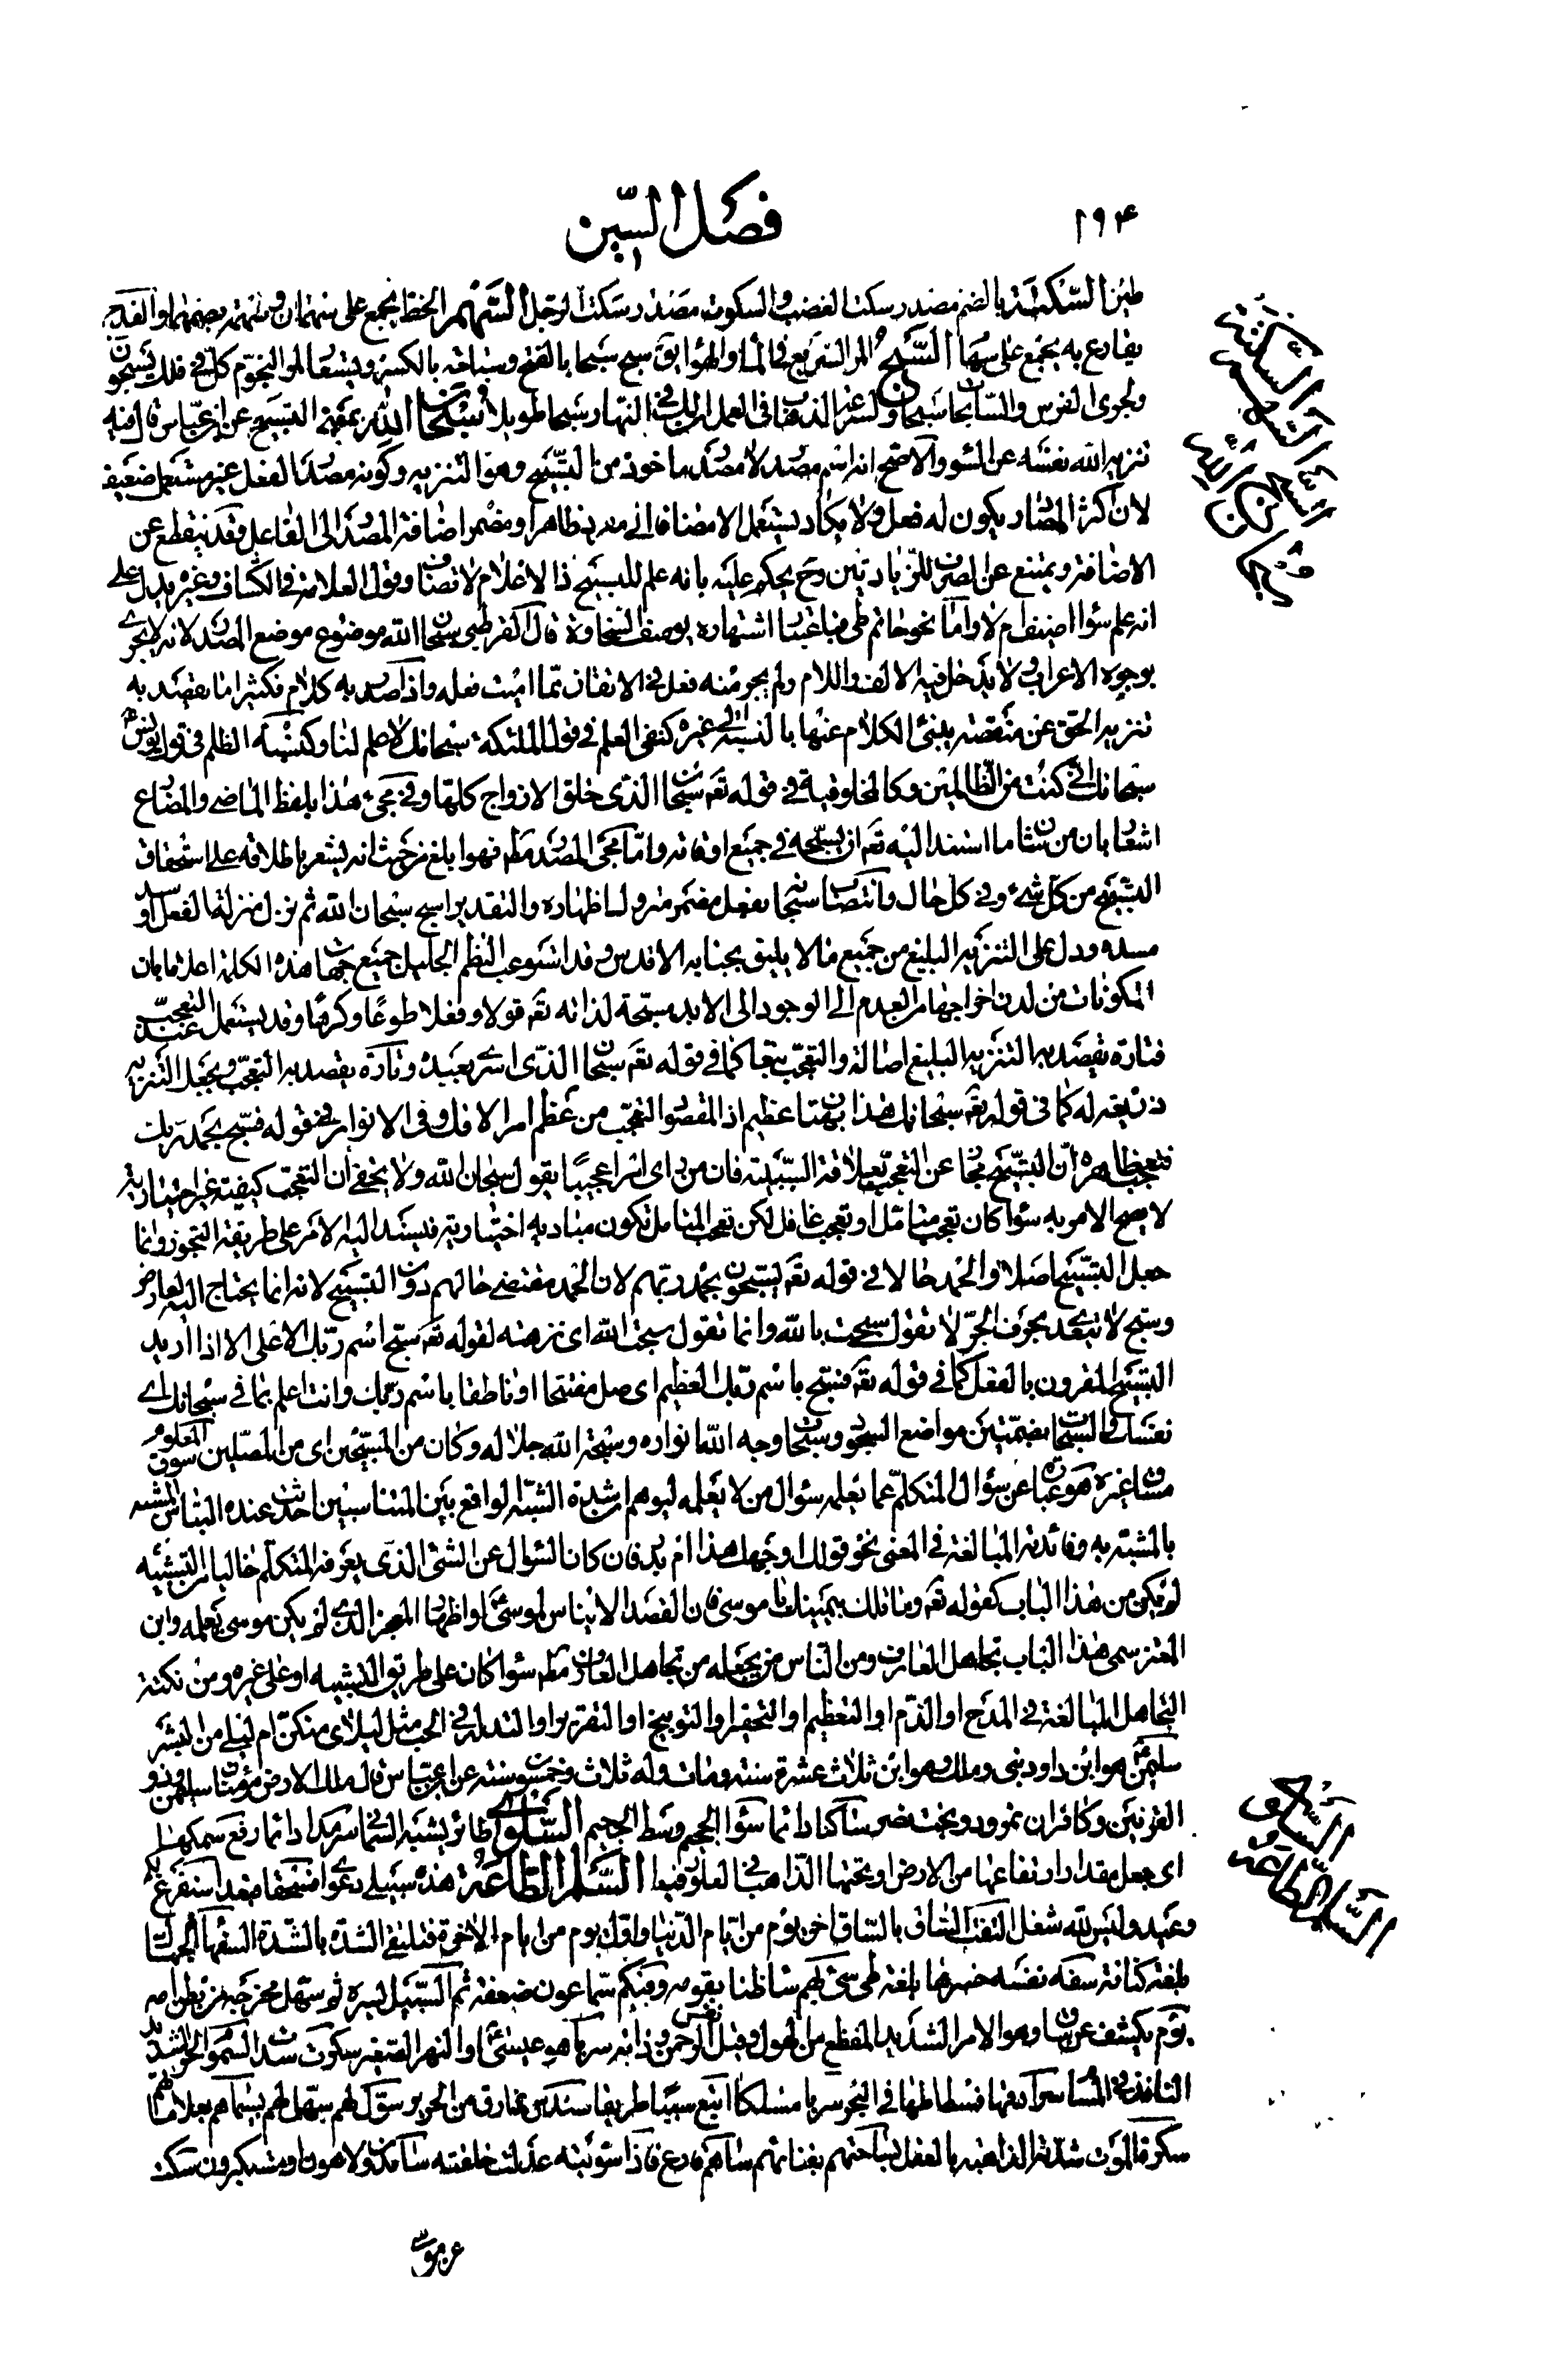 ١٩۴
فصل السين
طين السكتة بالضم مصدر سكت الغضب والسكوت مصدر سكت الرجل السهم الحظ يجمع على سهمان وسهمة بضمهما والقدح
يقارع به يجمع على سهام السبح المر السريع في الماء او الهواء يق سبح سبحا بالفتح وسباحة بالكسر ويستعار لمر النجوم كل في فلك يسبحون
ولجرى الفرس والسابحات سبحا ولسرعة الذهاب في العمل ان لك في النهار سبحا طويلا سبحان الله بمعنى التسبيح عن ابن عباس قال فيه
تنزيه الله نفسه عن السوء والاصح انه اسم مصدر لا مصدر ماخوذ من التسبيح وهو التنزيه وكونه مصدرا لفعل غير مستعمل ضعيف
لان اكثر المصادر يكون له فعل ولا يكاد يستعمل الا مضافا اى مفرد ظاهرا ومضمرا اضافة المصدر الى الفاعل وقد ينقطع عن
الاضافة ويمتنع عن الصرف للزيادتين وح يحكم عليه بانه علم للتسبيح اذ الاعلام لا تضاف وقول العلامة في الكشاف وغيره يدل على
انه علم سواء اضيف ام لا واما نحو حاتم طى فباعتبار اشتهاره بوصف السخاوة قال القرطبي سبحان الله موضوع موضع المصدر لانه لا يجرى
بوجوه الاعراب ولا يدخل فيه الالف واللام ولم يجر منه فعل في الاتقان مما اميت فعله واذا صدر به كلام فكثيرا ما يقصد به
تنزيه الحق عن منقصة ينبئ الكلام عنها بالنسبة الى غيره كنفى العلم في قول الملئكة سبحانك لا علم لنا وكنسبة الظلم في قول يونس
سبحانك انى كنت من الظالمين وكالمخلوقية في قوله تعم سبحان الذى خلق الازواج كلها وفي مجيء هذا بلفظ الماضى والمضارع
اشعار بان من شان ما اسند اليه تعم ان يسبحه في جميع اوقاته واما مجئ المصدر مطم فهو ابلغ من حيث انه يشعر باطلاقه على استحقاق
التسبيح من كل شئ وفي كل حال وانتصاب سبحان بفعل مضمر متروك اظهاره والتقدير اسبح سبحان الله ثم نزل منزلة الفعل وسد
مسده ودل على التنزيه البليغ من جميع ما لا يليق بجنابه الاقدس وقد استوعب النظم الجليل جميع جهات هذه الكلمة اعلاما بان
المكونات من لدن اخراجها من العدم الى الوجود الى الابد مسبحة لذاته تعم قولا وفعلا طوعا وكرها وقد يستعمل عند التعجب
فتارة يقصد به التنزيه البليغ اصالة والتعجب تبعا كما في قوله تعم سبحان الذى اسرى بعبده وتارة يقصد به التعجب ويجعل التنزيه
ذريعة له كما في قوله تعم سبحانك هذا بهتان عظيم اذ المقصود التعجب من عظم امر الافك وفي الانوار في قوله فسبح بحمد ربك
فتعجب ظاهره ان التسبيح مجاز عن التعجب بعلاقة السببية فان من راى امرا عجيبا يقول سبحان الله ولا يخفى ان التعجب كيفية غير اختيارية
لا يصح الامر به سواء كان تعجب متامل او تعجب غافل لكن تعجب المتامل تكون مباديه اختيارية فيسند اليه الامر على طريقة التجوز وانما
جعل التسبيح اصلا والحمد حالا في قوله تعم يسبحون بحمد ربهم لان الحمد مقتضى حالهم دون التسبيح لانه انما يحتاج اليه لعارض
وسبح لا يتعدى بحرف الجر لا تقول سبحت بالله وانما تقول سبحت الله اى نزهته لقوله تعم سبح اسم ربك الاعلى الا اذا اريد
التسبيح المقرون بالفعل كما في قوله تعم فسبح باسم ربك العظيم اى صل مفتتحا او ناطقا باسم ربك وانت اعلم بما في سبحانك اى
نفسك والسبحات بضمتين مواضع السجود وسبحات وجه الله انواره وسبحة الله جلاله وكان من المسبحين اى من المصلين سوق المعلوم
مساق غيره هو عبارة عن سؤال المتكلم عما يعلمه سؤال من لا يعلمه ليوهم ان شدة الشبه الواقع بين المتناسبين احدثت عنده التباس المشبه
بالمشبه به وفائدته المبالغة في المعنى نحو قولك اوجهك هذا ام بدر فان كان السؤال عن الشئ الذى يعرفه المتكلم خاليا من التشبيه
لم يكن من هذا الباب كقوله تعم وما تلك بيمينك يا موسى فان القصد الايناس لموسى او اظهار المعجز الذى لم يكن موسى يعلمه وابن
المعتز سمى هذا الباب تجاهل العارف ومن الناس من يجعله من تجاهل العارف مطم سواء كان على طريق التشبيه او على غيره ومن نكتة
التجاهل المبالغة في المدح او الذم او التعظيم او التحقير او التوبيخ او التقرير او التدله في الحب مثل ليلاى منكن ام ليلى من البشر
سليمن هو ابن داود نبى وملك وهو ابن ثلاث عشرة سنة ومات وله ثلاث وخمسون سنة عن ابن عباس قال ملك الارض مؤمنان سليمن وذو
القرنين وكافران نمرود وبخت نصر ساكنا دائما سواء الجحيم وسط الجحيم السلوى طائر يشبه السمانى سرمدا دائما رفع سمكها
اى جعل مقدار ارتفاعها من الارض او ثخنها الذاهب في العلو رفيعا السلم الطاعة هذه سبيلى دعوتى
وعيد وليس لله شغل التفت الساق بالساق اخر يوم من ايام الدنيا واول يوم من ايام الاخرة فتلتقى الشدة بالشدة السفهاء الجهال
بلغة كنانة سفه نفسه خسرها بلغة طى سئ بهم ساء ظنا بقومه وفيكم سماعون ضعفة ثم السبيل يسره ثم سهل مخرجه من بطن امه
يوم يكشف عن ساق وهو الامر الشديد المفظع من الهول وقيل نفس الرحمن وذاته سريا هو عيسى او النهر الصغير سكرت سدت السموم الحر الشديد
النافذ في المسام سرادقها فسطاطها في البحر سربا مسلكا اتبع سببا طريقا سندس رقاق من الحرير سول لهم سهل لهم بسيماهم بعلامتهم
سكرة الموت شدته الذاهبة بالعقل بساحتهم بفنائهم ساهم قارع فاذا سويته عدلت خلقته سامدون لاهون او مستكبرون سكت
عن موسى
السكتة
السهم
السبح
سبحان الله
سليمن
السلوى
السلم الطاعة